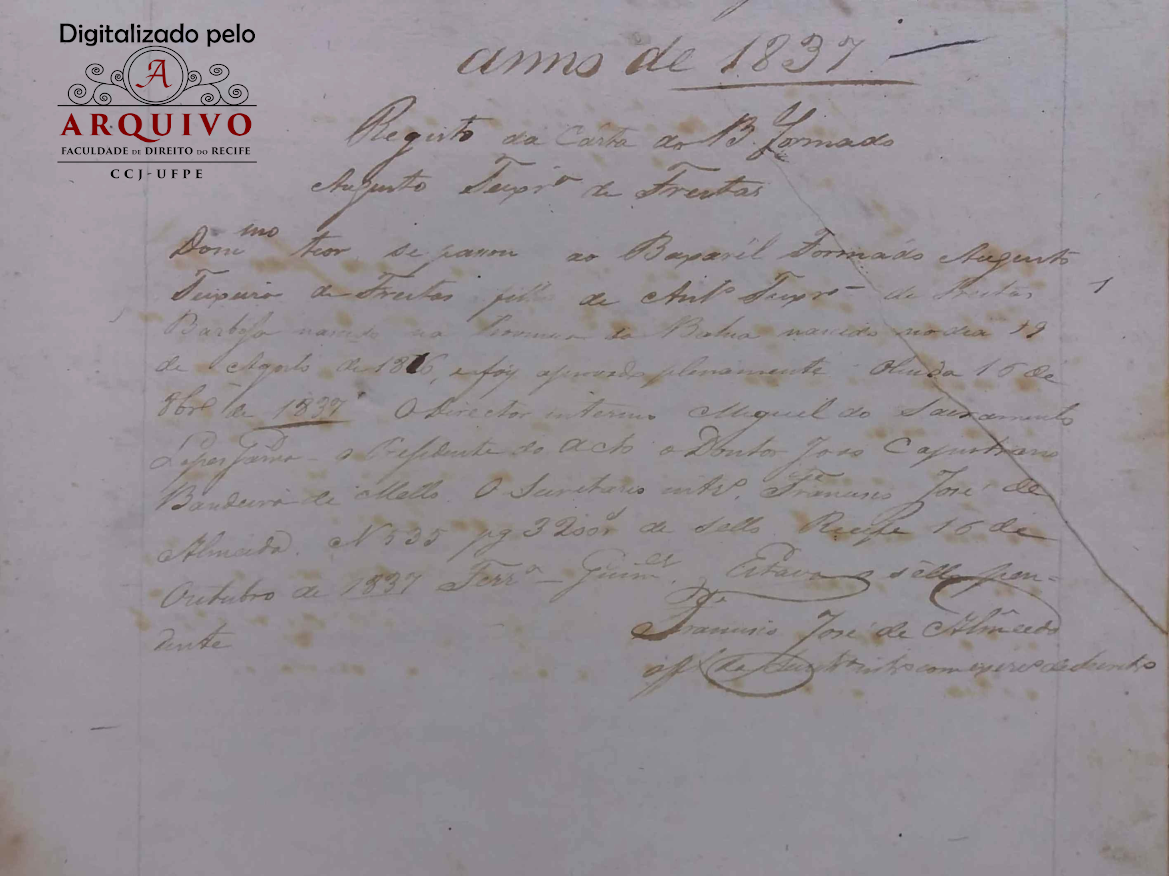 Digitalizado pelo
A
ARQUIVO
FACULDADE DE DIREITO DO RECIFE
CCJ-UFPE
anno de 1837
Registo da Carta do B. Formado
Augusto Teixrª de Freitas
Do mmo teor se passou ao Baxarel Formado Augusto
Teixeira de Freitas filº de Antº Teixrª de Freitas
Barbosa nascido na Bahia nascido no dia 19
de Agosto de 1816, e foy aprovado plenamente Olinda 16 de
8brº de 1837 O Director interino Miguel do Sacramento
Lopes Gama o Presidente do Acto o Doutor Joao Capistrano
Bandeira de Mello O Secretario intrº. Francisco José de
Almeida. N 535 pg 3200rs de sello Recife 16 de
Outubro de 1837 Ferrª Guimes. Estava o sello pen-
dente
Francisco José de Almeida